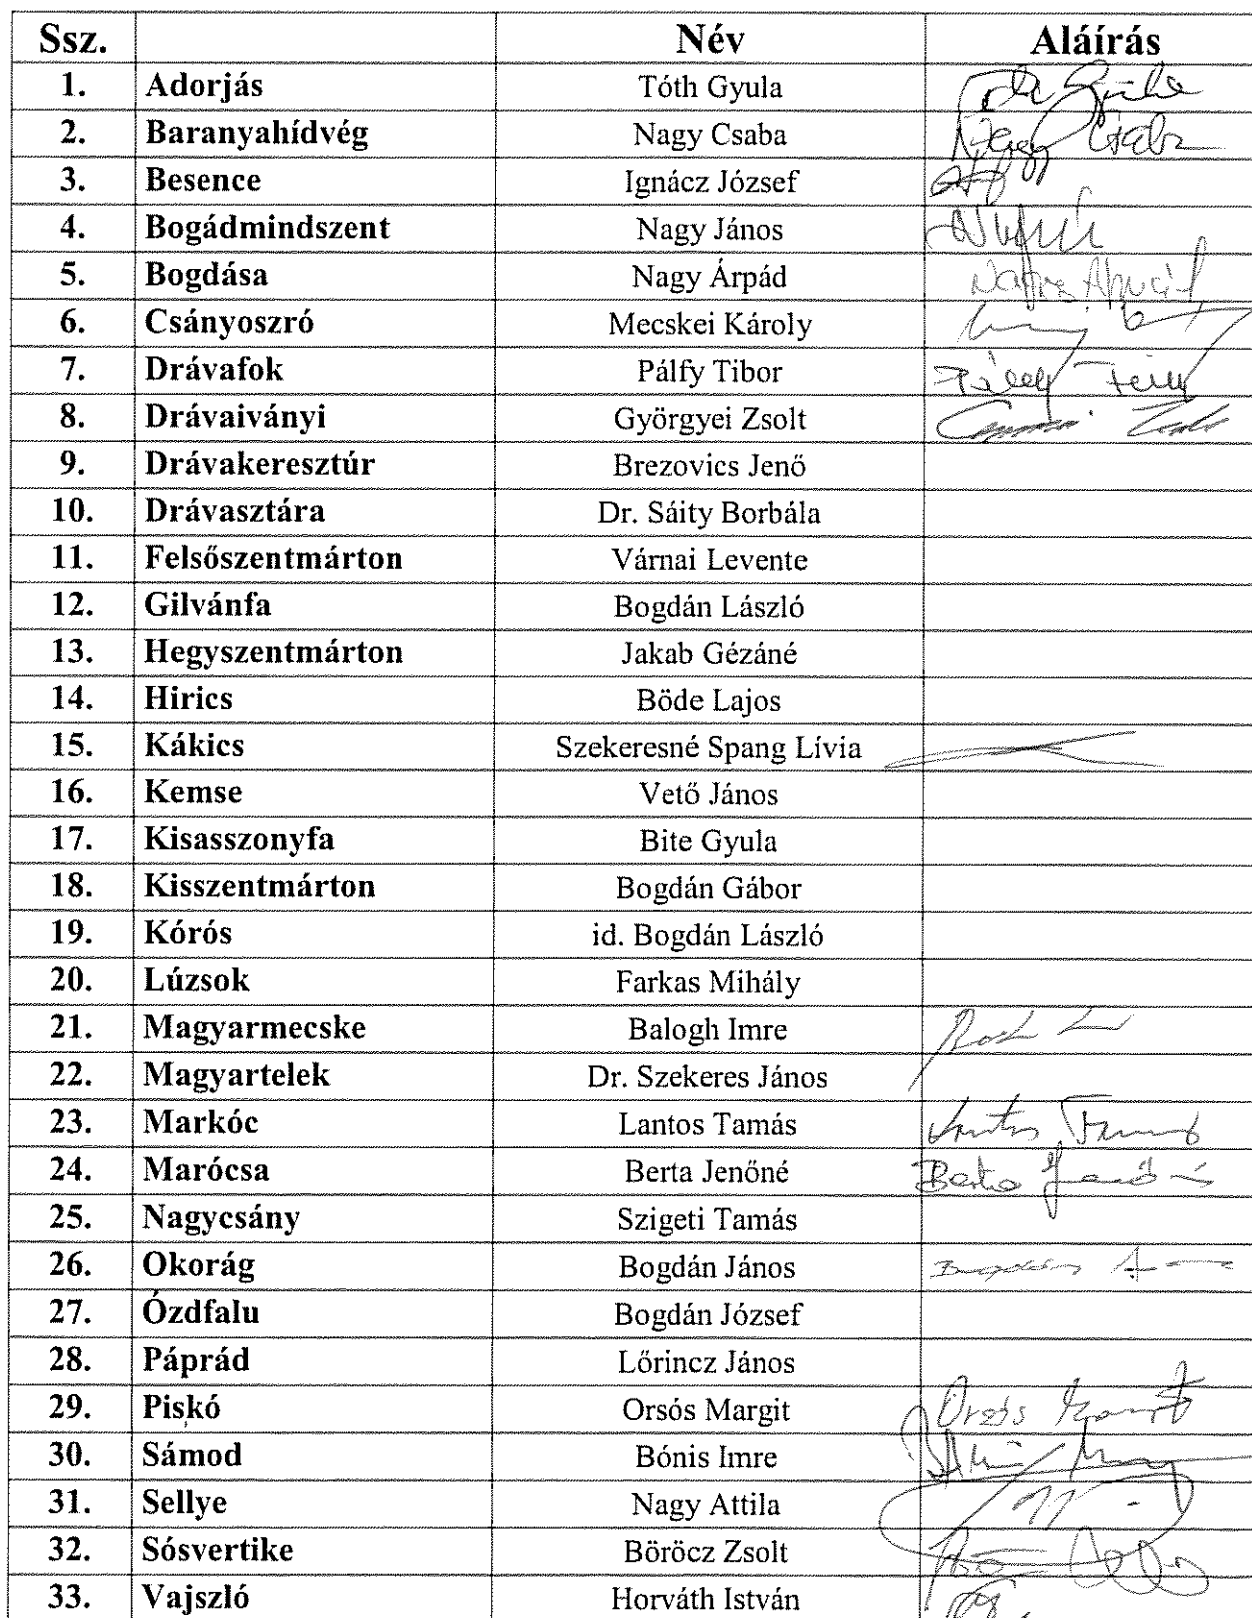 Ssz. Név Aláírás
1. Adorjás Tóth Gyula
2. Baranyahídvég Nagy Csaba Nagy Csaba
3. Besence Ignácz József
4. Bogádmindszent Nagy János
5. Bogdása Nagy Árpád Nagy Árpád
6. Csányoszró Mecskei Károly
7. Drávafok Pálfy Tibor
8. Drávaiványi Györgyei Zsolt
9. Drávakeresztúr Brezovics Jenő
10. Drávasztára Dr. Sáity Borbála
11. Felsőszentmárton Várnai Levente
12. Gilvánfa Bogdán László
13. Hegyszentmárton Jakab Gézáné
14. Hirics Böde Lajos
15. Kákics Szekeresné Spang Lívia
16. Kemse Vető János
17. Kisasszonyfa Bite Gyula
18. Kisszentmárton Bogdán Gábor
19. Kórós id. Bogdán László
20. Lúzsok Farkas Mihály
21. Magyarmecske Balogh Imre
22. Magyartelek Dr. Szekeres János
23. Markóc Lantos Tamás Lantos Tamás
24. Marócsa Berta Jenőné Berta Jenőné
25. Nagycsány Szigeti Tamás
26. Okorág Bogdán János Bogdán
27. Ózdfalu Bogdán József
28. Páprád Lőrincz János
29. Piskó Orsós Margit Orsós Margit
30. Sámod Bónis Imre
31. Sellye Nagy Attila
32. Sósvertike Böröcz Zsolt
33. Vajszló Horváth István